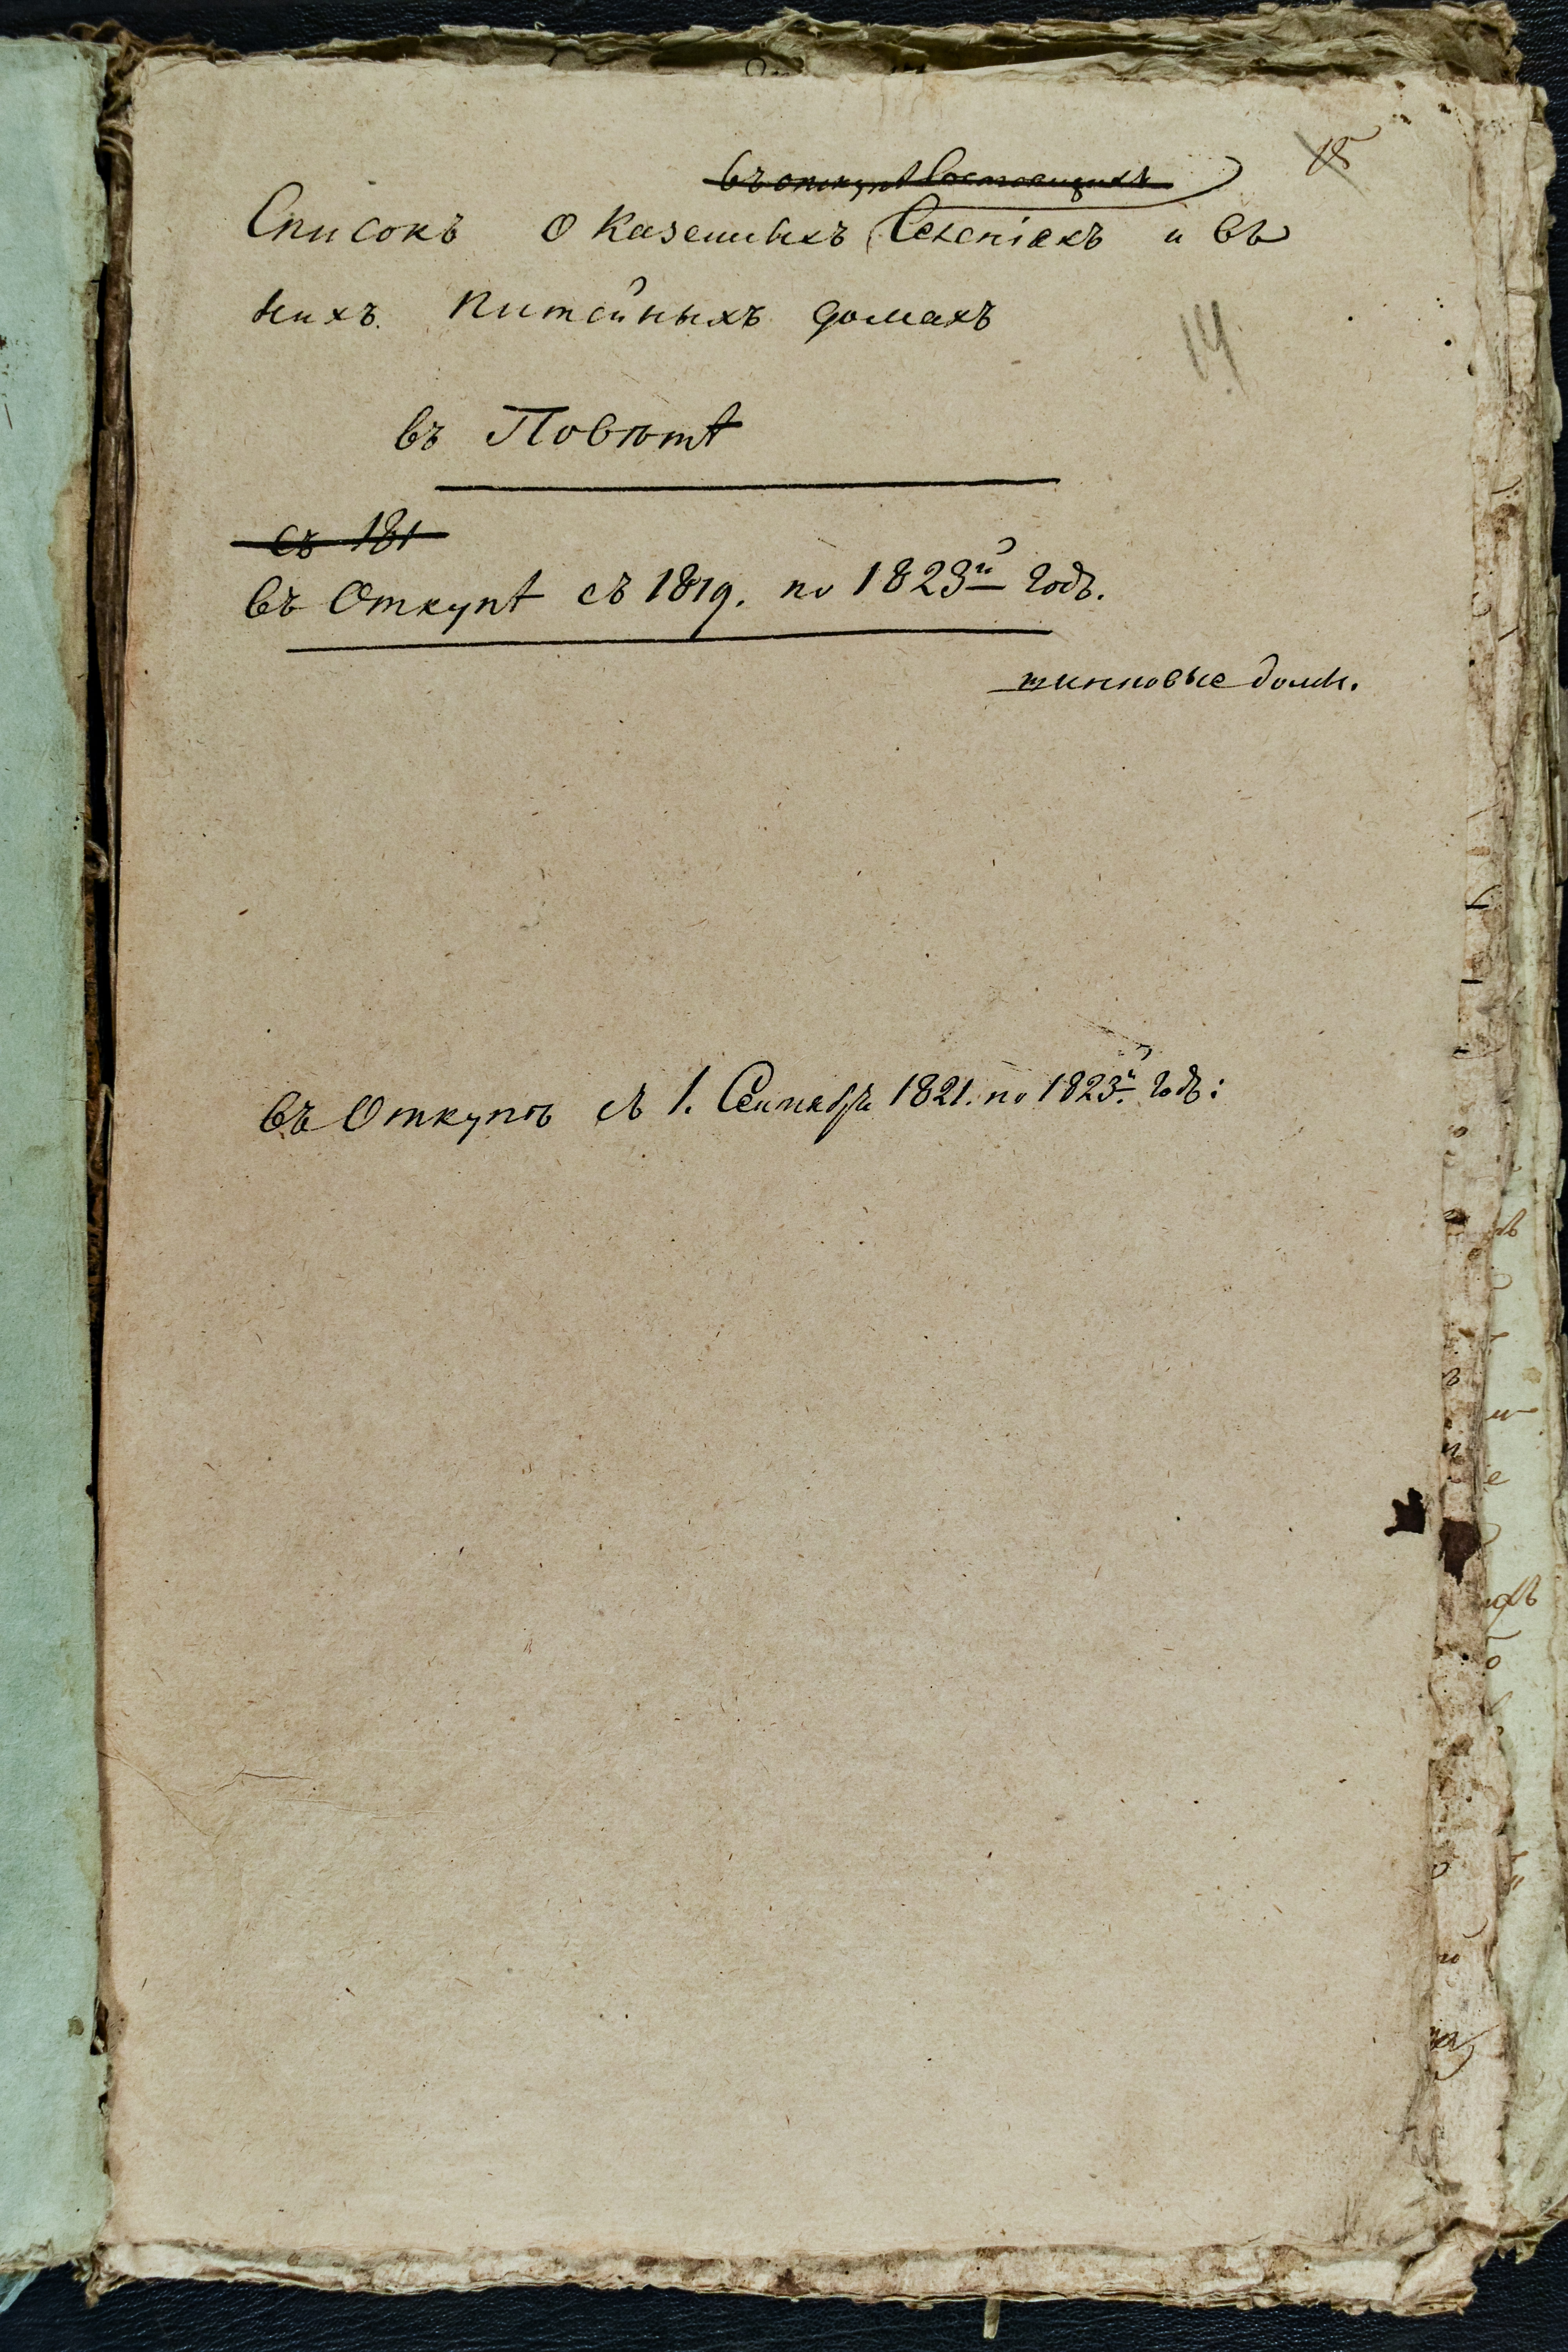 15
въ откупѣ состоящихъ
Списокъ о Казенныхъ Селеніяхъ и въ
нихъ питейныхъ домахъ
14
въ Повѣтѣ
съ 181
въ Откупѣ съ 1819. по 1823й годъ.
шинковые домы.
въ Откупѣ съ 1. Сентября 1821. по 1823й годъ: